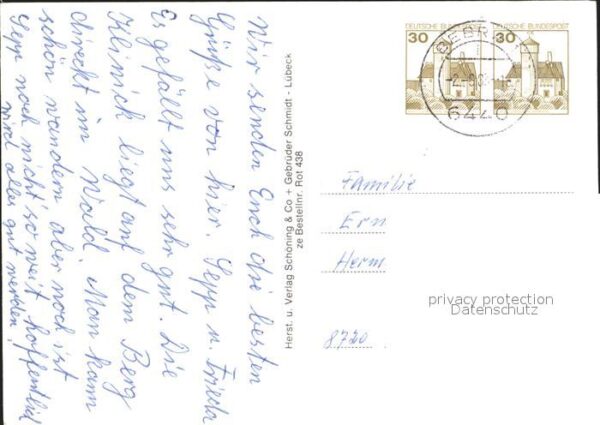 Wir senden Euch die besten
Grüße von hier. Sepp u. Frieda
Es gefällt uns sehr gut. Die
Klinick liegt auf dem Berg
direckt im Wald. Man kann
schön wandern aber noch ist
Sepp noch nicht so weit hoffentlich
wird alles gut werden!
Herst. u. Verlag Schöning & Co + Gebrüder Schmidt - Lübeck
ze Bestellnr. Rot 438
DEUTSCHE BUNDESPOST DEUTSCHE BUNDESPOST
30 30
6440
Familie
Ern
Herm
privacy protection
Datenschutz
8720